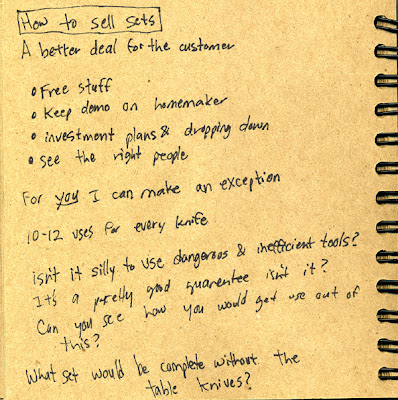 How to sell sets
A better deal for the customer
• Free stuff
• Keep demo on homemaker
• investment plans & dropping down
• see the right people
For you I can make an exception
10-12 uses for every knife
isn't it silly to use dangerous & inefficient tools?
It's a pretty good guarentee isn't it?
Can you see how you would get use out of
this?
What set would be complete without the
table knives?